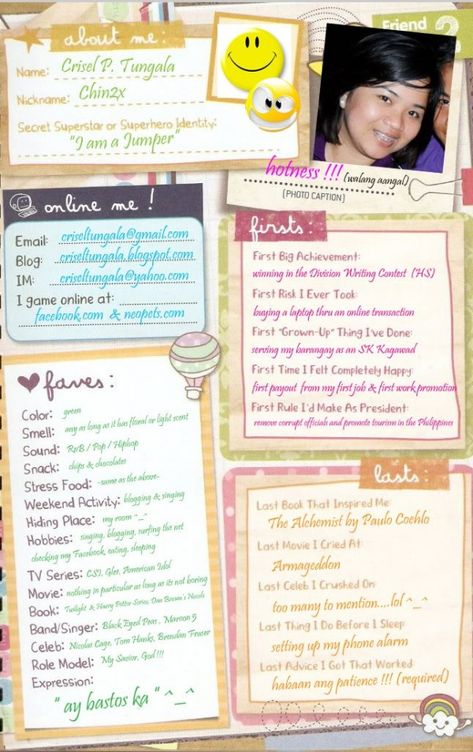 about me:
Friend 2
Name: Crisel P. Tungala
Nickname: Chin2x
Secret Superstar or Superhero Identity:
"I am a Jumper"
hotness !!! (walang aangal)
[PHOTO CAPTION]
online me !
Email: criseltungala@gmail.com
Blog: criseltungala.blogspot.com
IM: criseltungala@yahoo.com
I game online at:
facebook.com & neopets.com
firsts:
First Big Achievement:
winning in the Division Writing Contest (HS)
First Risk I Ever Took:
buying a laptop thru an online transaction
First "Grown-Up" Thing I've Done:
serving my barangay as an SK Kagawad
First Time I Felt Completely Happy:
first payout from my first job & first work promotion
First Rule I'd Make As President:
remove corrupt officials and promote tourism in the Philippines
faves:
Color: green
Smell: any as long as it has floral or light scent
Sound: RnB / Pop / Hiphop
Snack: chips & chocolates
Stress Food: -same as the above-
Weekend Activity: blogging & singing
Hiding Place: my room ^_^
Hobbies: singing, blogging, surfing the net
checking my Facebook, eating, sleeping
TV Series: CSI, Glee, American Idol
Movie: nothing in particular as long as its not boring
Book: Twilight & Harry Potter Series, Dan Brown's Novels
Band/Singer: Black Eyed Peas, Maroon 5
Celeb: Nicolas Cage, Tom Hanks, Brendan Fraser
Role Model: My Savior, God !!!
Expression:
" ay bastos ka " ^_^
lasts:
Last Book That Inspired Me
The Alchemist by Paulo Coehlo
Last Movie I Cried At:
Armageddon
Last Celeb I Crushed On:
too many to mention....lol ^_^
Last Thing I Do Before I Sleep
setting up my phone alarm
Last Advice I Got That Worked
habaan ang patience !!! (required)